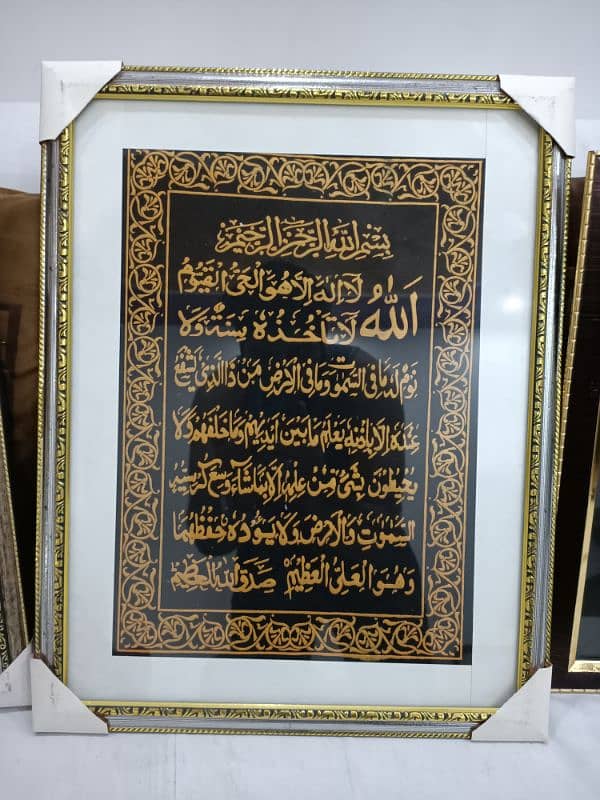 بسم الله الرحمن الرحيم
الله لا اله الا هو الحي القيوم
لا تاخذه سنة ولا
نوم له ما في السموت وما في الارض من ذا الذي يشفع
عنده الا باذنه يعلم ما بين ايديهم وما خلفهم ولا
يحيطون بشيء من علمه الا بما شاء وسع كرسيه
السموت والارض ولا يؤده حفظهما
وهو العلي العظيم صدق الله العظيم